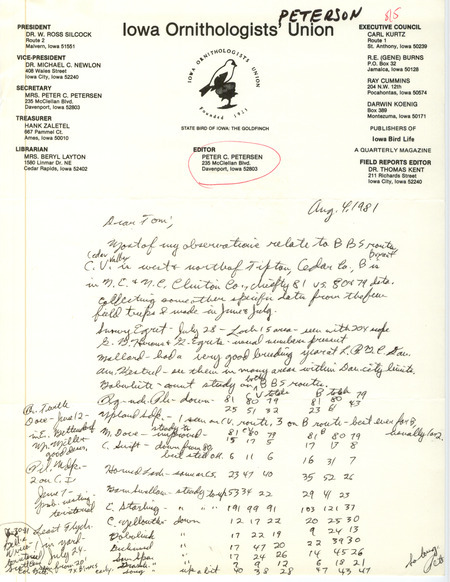 PETERSON
8/5
Iowa Ornithologists' Union
PRESIDENT
DR. W. ROSS SILCOCK
Route 2
Malvern, Iowa 51551
VICE-PRESIDENT
DR. MICHAEL C. NEWLON
408 Wales Street
Iowa City, Iowa 52240
SECRETARY
MRS. PETER C. PETERSEN
235 McClellan Blvd.
Davenport, Iowa 52803
TREASURER
HANK ZALETEL
667 Pammel Ct.
Ames, Iowa 50010
LIBRARIAN
MRS. BERYL LAYTON
1580 Linmar Dr. NE
Cedar Rapids, Iowa 52402
IOWA ORNITHOLOGISTS UNION
Founded 1923
STATE BIRD OF IOWA: THE GOLDFINCH
EDITOR
PETER C. PETERSEN
235 McClellan Blvd.
Davenport, Iowa 52803
EXECUTIVE COUNCIL
CARL KURTZ
Route 1
St. Anthony, Iowa 50239
R.E. (GENE) BURNS
P.O. Box 32
Jamaica, Iowa 50128
RAY CUMMINS
204 N.W. 12th
Pocahontas, Iowa 50574
DARWIN KOENIG
Box 389
Montezuma, Iowa 50171
PUBLISHERS OF
Iowa Bird Life
A QUARTERLY MAGAZINE
FIELD REPORTS EDITOR
DR. THOMAS KENT
211 Richards Street
Iowa City, Iowa 52240
Aug. 4, 1981
Dear Tom,
Most of my observations relate to BBS routes
Cedar Valley
C.V. is west & north of Tipton, Cedar Co., B is
in N.C. & N.E. Clinton Co., chiefly 81 vs. 80 & 79 data.
Collecting some other specific data from the few
field trips I made in June & July.
Snowy Egret - July 28 - Lock 15 area - seen with 20X scope
G. B. Heron & G. Egrets - usual numbers present
Mallard - had a very good breeding year at
Am. Kestrel - see them in many areas within Dav. city limits.
Bobwhite - on BBS routes.
Rg-nk. Ph - down - 81 80 79 81 80 79
25 51 32 23 61 43
Upland Sdp. - 1 seen on CV. route, 3 on B route - best ever for B,
usually 1 or 2
M. Dove - 81 80 79 81 80 79
15 17 5 17 17 8
C. Swift - down from 80
but still OK 6 11 6 16 31 7
Horned Lark - 23 47 40 35 52 26
Barn Swallow - steady to up 53 34 22 29 41 23
C. Starling - " " " 191 99 91 103 121 37
C. Yellowth - down 12 17 22 20 25 30
Bobolink " 17 22 19 9 24 13
Dickcissel " 17 47 20 22 39 30
" 17 24 26 14 45 26
7 9 12 6 18 21
Song " up a bit 40 38 28 47 43 47
June 12 -
Bettendorf
June 7 -
prob. nesting
territorial
Least Flyc.
in yard -
July 24 -
So long
Pete